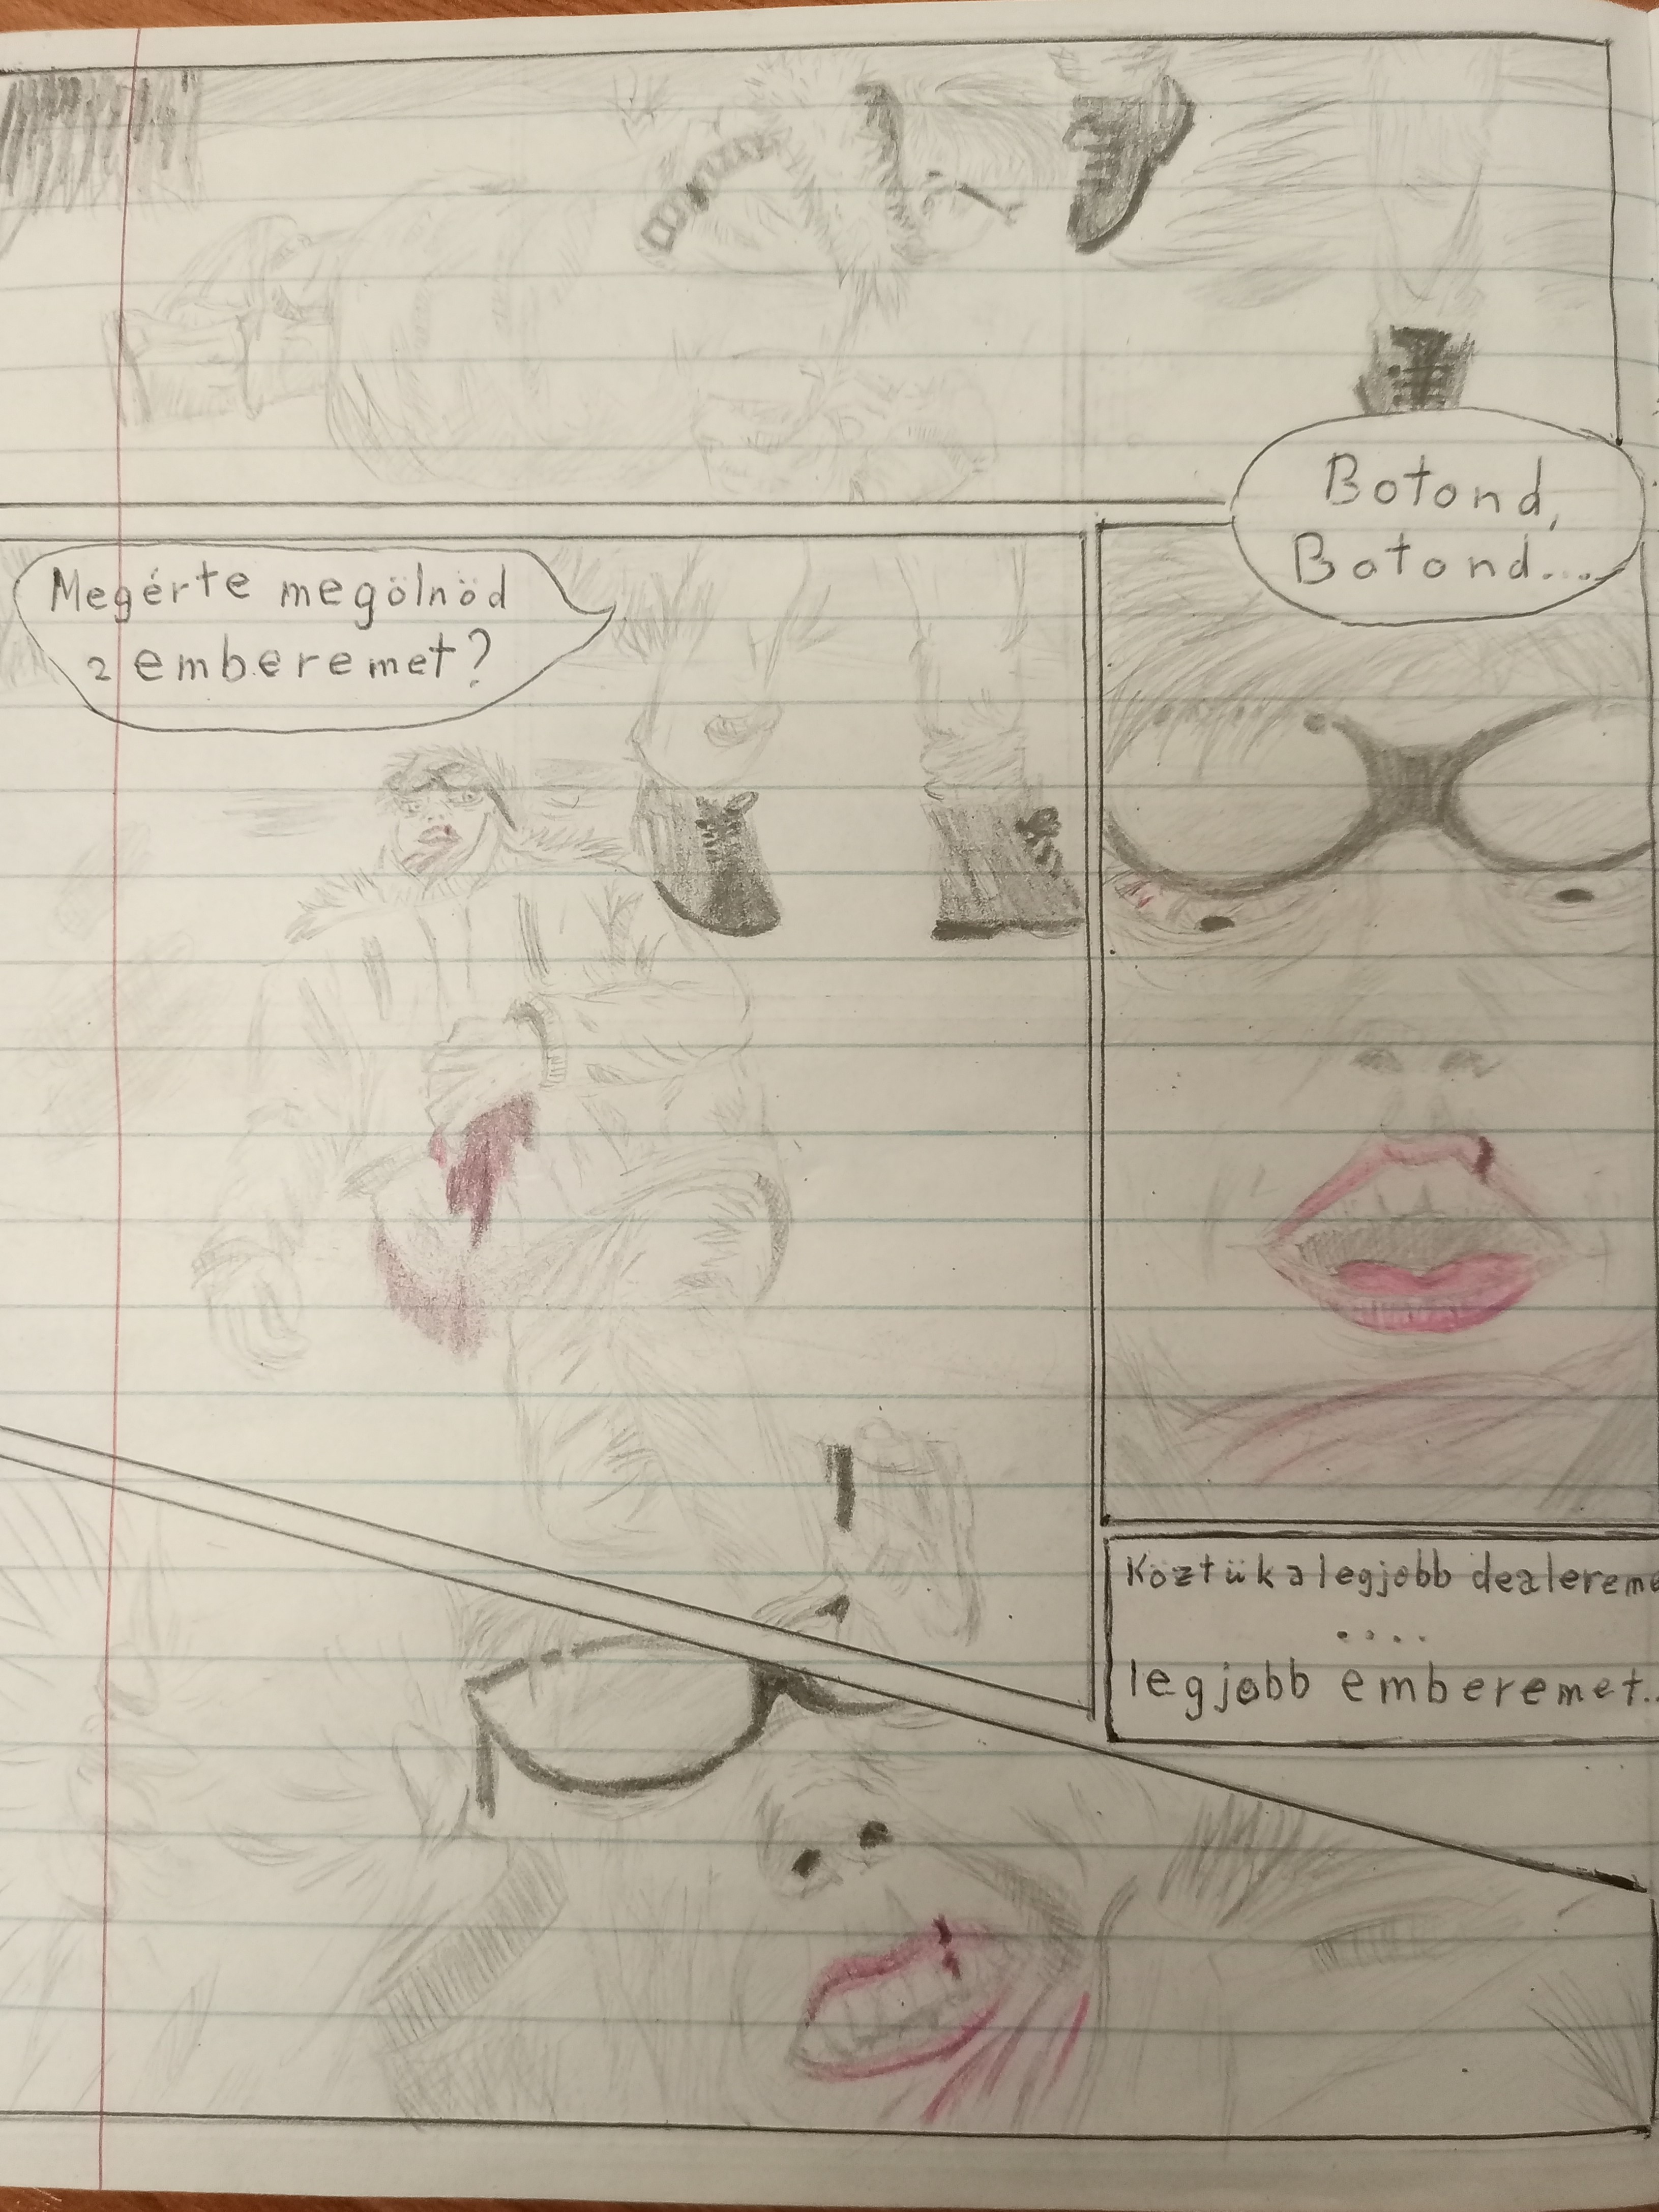 Botond,
Botond...
Megérte megölnöd
2 emberemet?
Köztük a legjobb dealereme
....
legjobb emberemet..